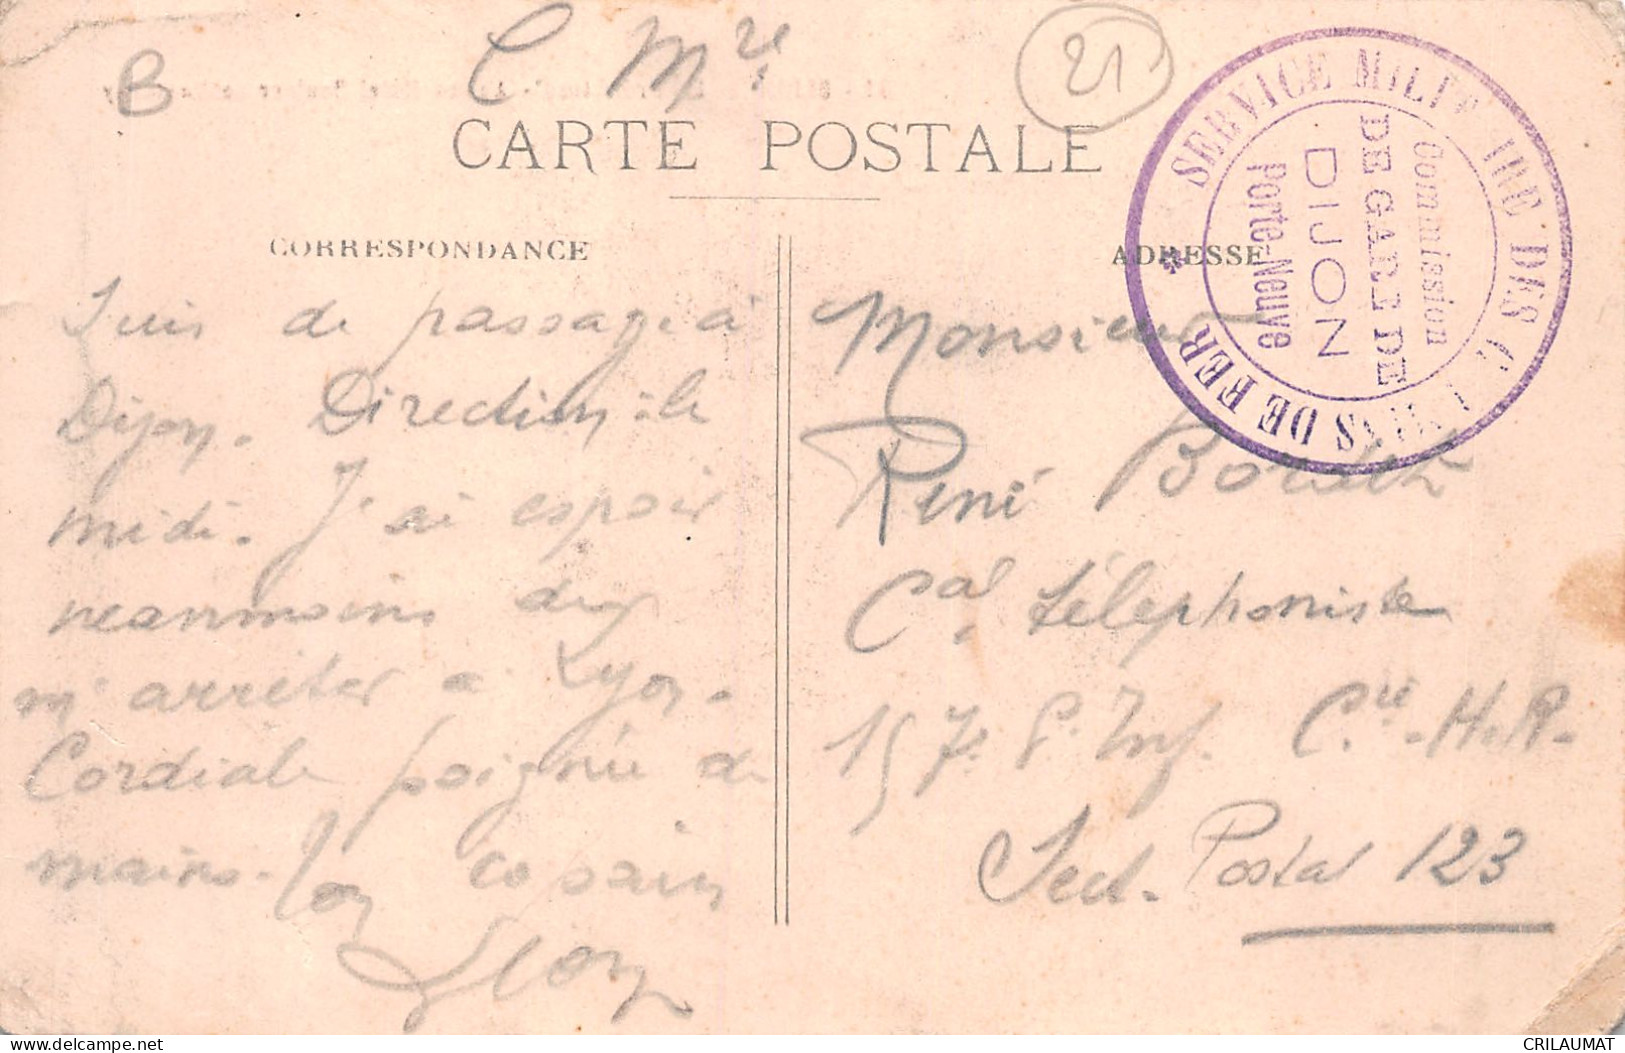 B
C Mre
21
CARTE POSTALE
SERVICE MILITAIRE DES CHEMINS DE FER
Commission
DE GARE DE
DIJON
Porte-Neuve
CORRESPONDANCE
Suis de passage à
Dijon. Direction: le
midi. J'ai espoir
neanmoins de
m'arrêter a Lyon.
Cordiale poignée de
mains. Ton copain
Léon
ADRESSE
Monsieur
René
Cal téléphoniste
157e Inf. Cie H.R.
Sect. Postal 123
CRILAUMAT